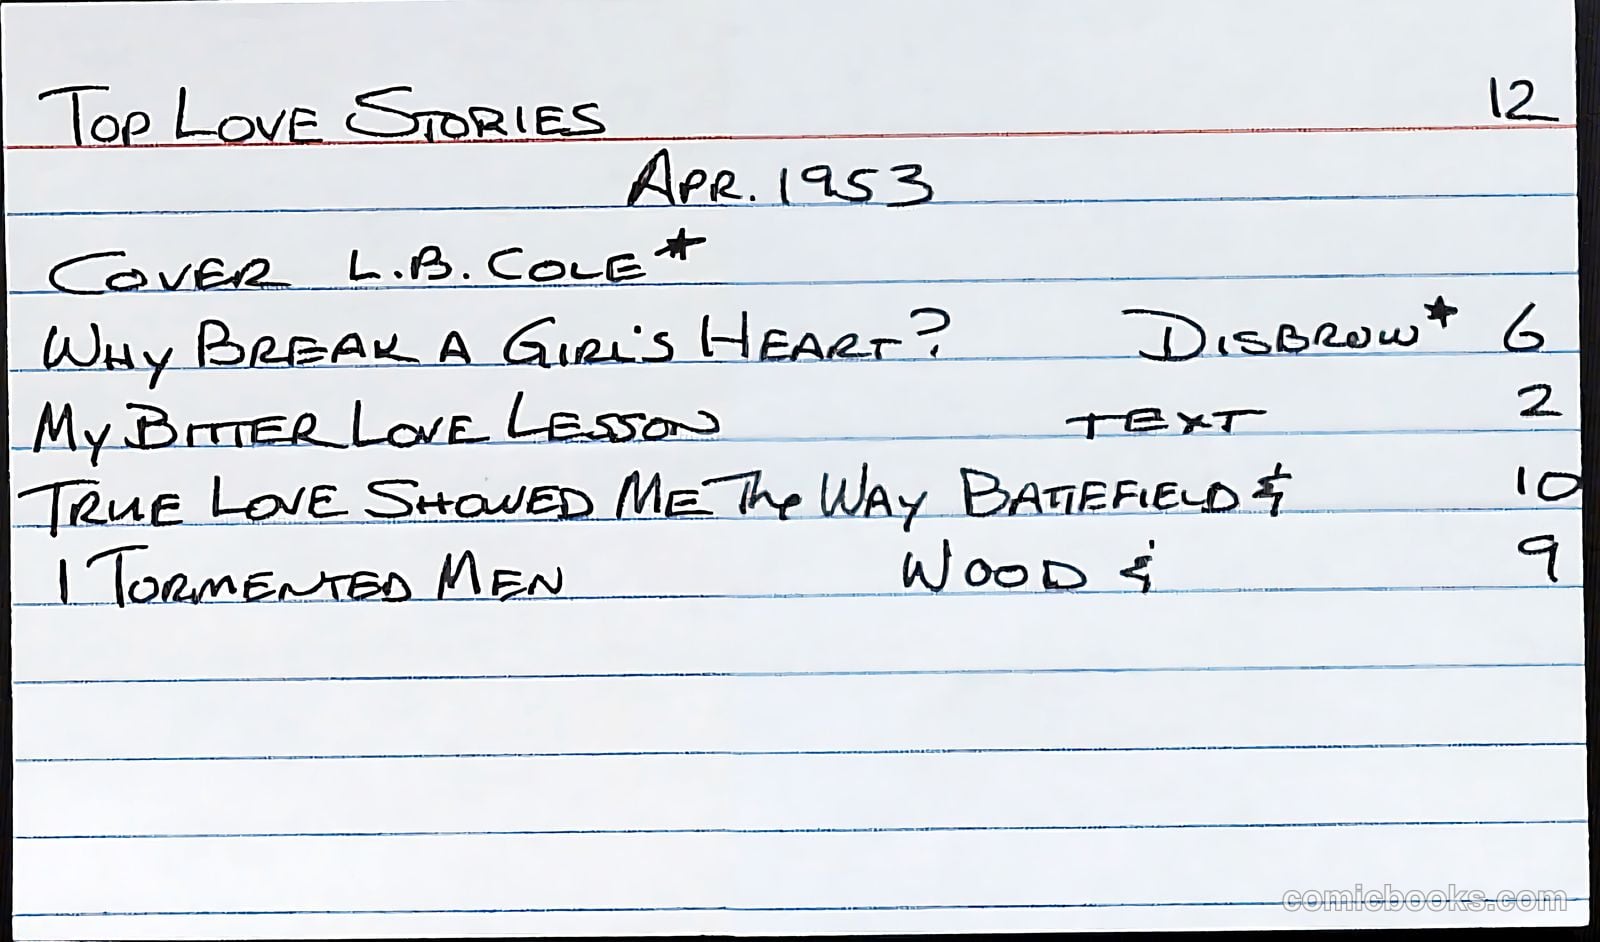 TOP LOVE STORIES 12
APR. 1953
COVER L.B. COLE*
WHY BREAK A GIRL'S HEART? DISBROW* 6
MY BITTER LOVE LESSON TEXT 2
TRUE LOVE SHOWED ME The WAY BATTEFIELD & 10
I TORMENTED MEN WOOD & 9
comicbooks.com